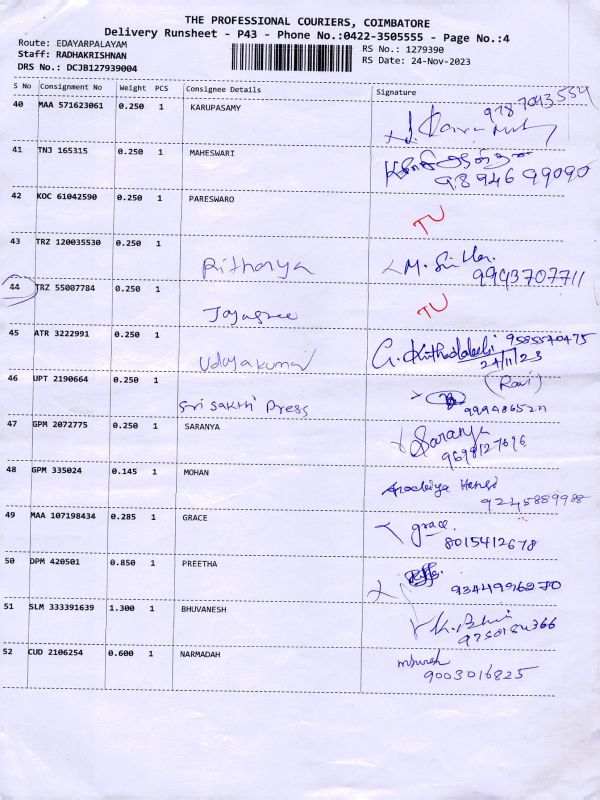 THE PROFESSIONAL COURIERS, COIMBATORE
Delivery Runsheet - P43 - Phone No.:0422-3505555 - Page No.:4
Route: EDAYARPALAYAM
Staff: RADHAKRISHNAN
DRS No.: DCJB127939004
RS No.: 1279390
RS Date: 24-Nov-2023
S No Consignment No Weight PCS Consignee Details Signature
40 MAA 571623061 0.250 1 KARUPASAMY
41 TNJ 165315 0.250 1 MAHESWARI
98946 99090
42 KOC 61042590 0.250 1 PARESWARO TU
43 TRZ 120035530 0.250 1
Rithanya
9943707711
44 TRZ 55007784 0.250 1 TU
Jayasree
45 ATR 3222991 0.250 1
Udayakumar
24/11/23
46 UPT 2190664 0.250 1 (Ravi)
Sri Sakthi Press
47 GPM 2072775 0.250 1 SARANYA Saranya
48 GPM 335024 0.145 1 MOHAN
9245889988
49 MAA 107198434 0.285 1 GRACE grace.
8015412678
50 DPM 420501 0.850 1 PREETHA
9344996270
51 SLM 333391639 1.300 1 BHUVANESH
52 CUD 2106254 0.600 1 NARMADAH
9003016825